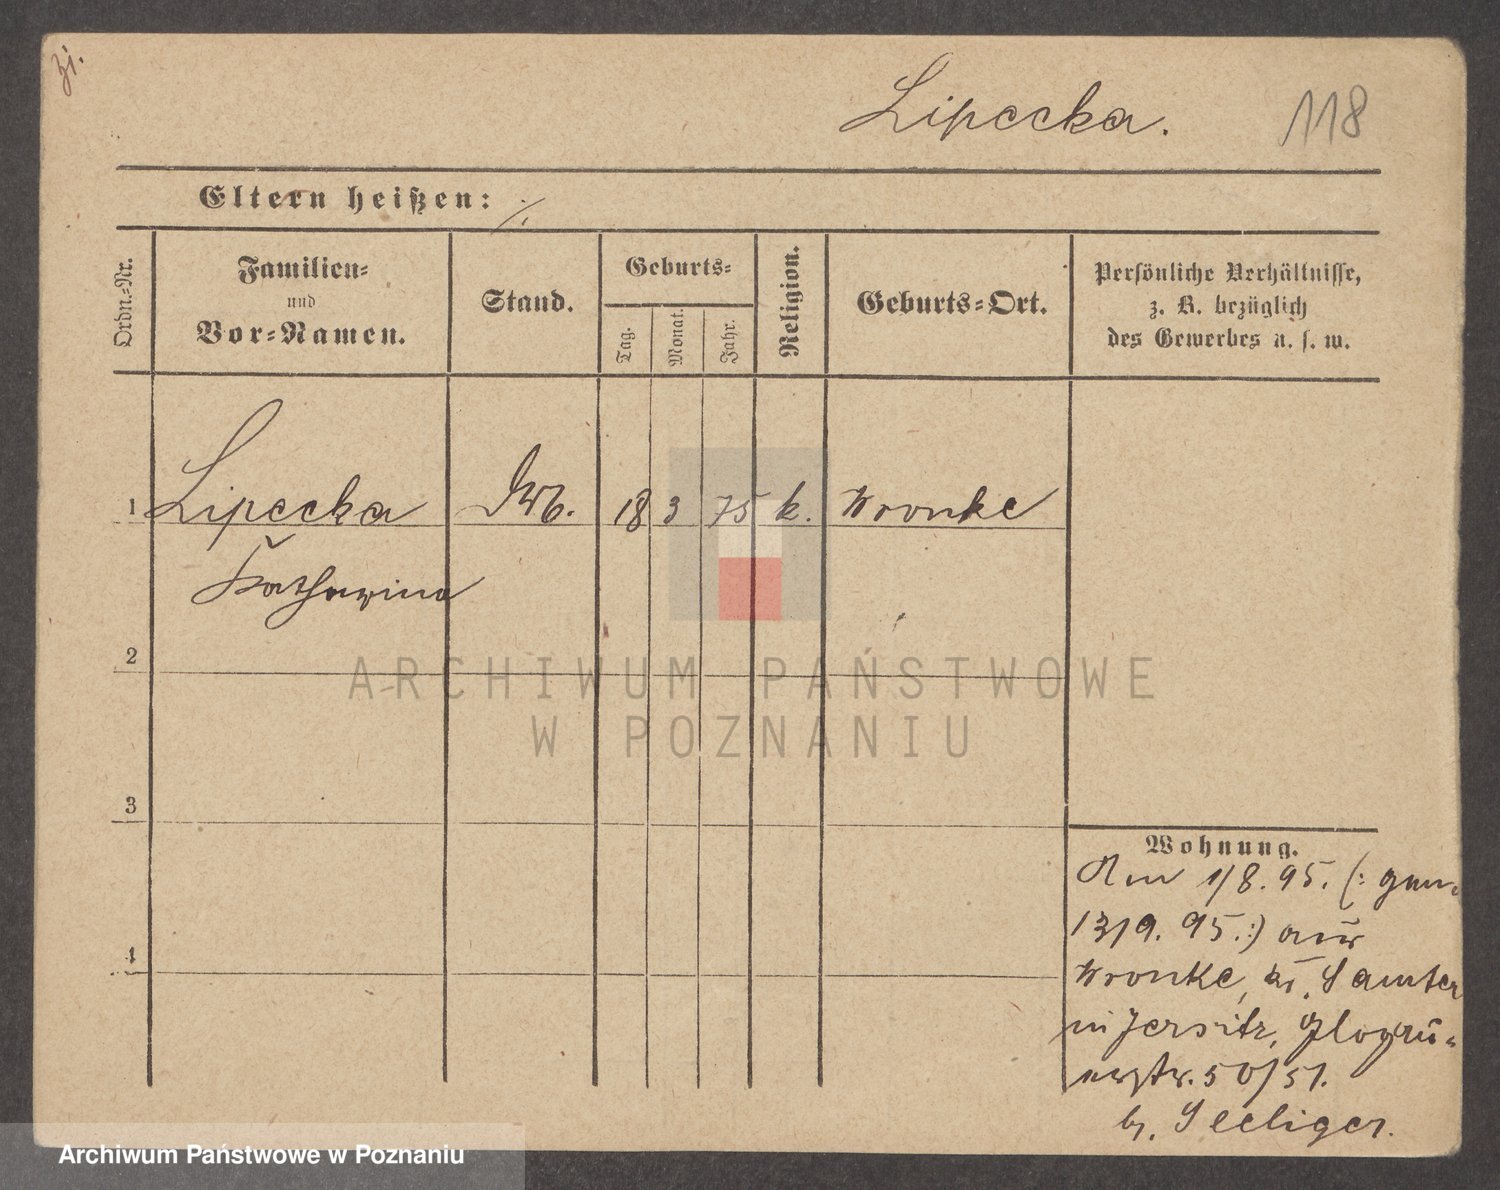 zi.
Lipecka. 118
Eltern heißen: ./.
Ordn.-Nr.
Familien-
und
Vor-Namen.
Stand.
Geburts-
Tag.
Monat.
Jahr.
Religion.
Geburts-Ort.
Persönliche Verhältnisse,
z. B. bezüglich
des Gewerbes u. s. w.
1 Lipecka 18 3 75 k. Wronke
Katharina
2
3
4
Wohnung.
Am 1/8. 95. (: gem.
13/9. 95. :) aus
Wronke, Kr. Samter
in Jersitz, Glogau-
erstr. 50/51.
b. Seeliger.
ARCHIWUM PAŃSTWOWE
W POZNANIU
Archiwum Państwowe w Poznaniu